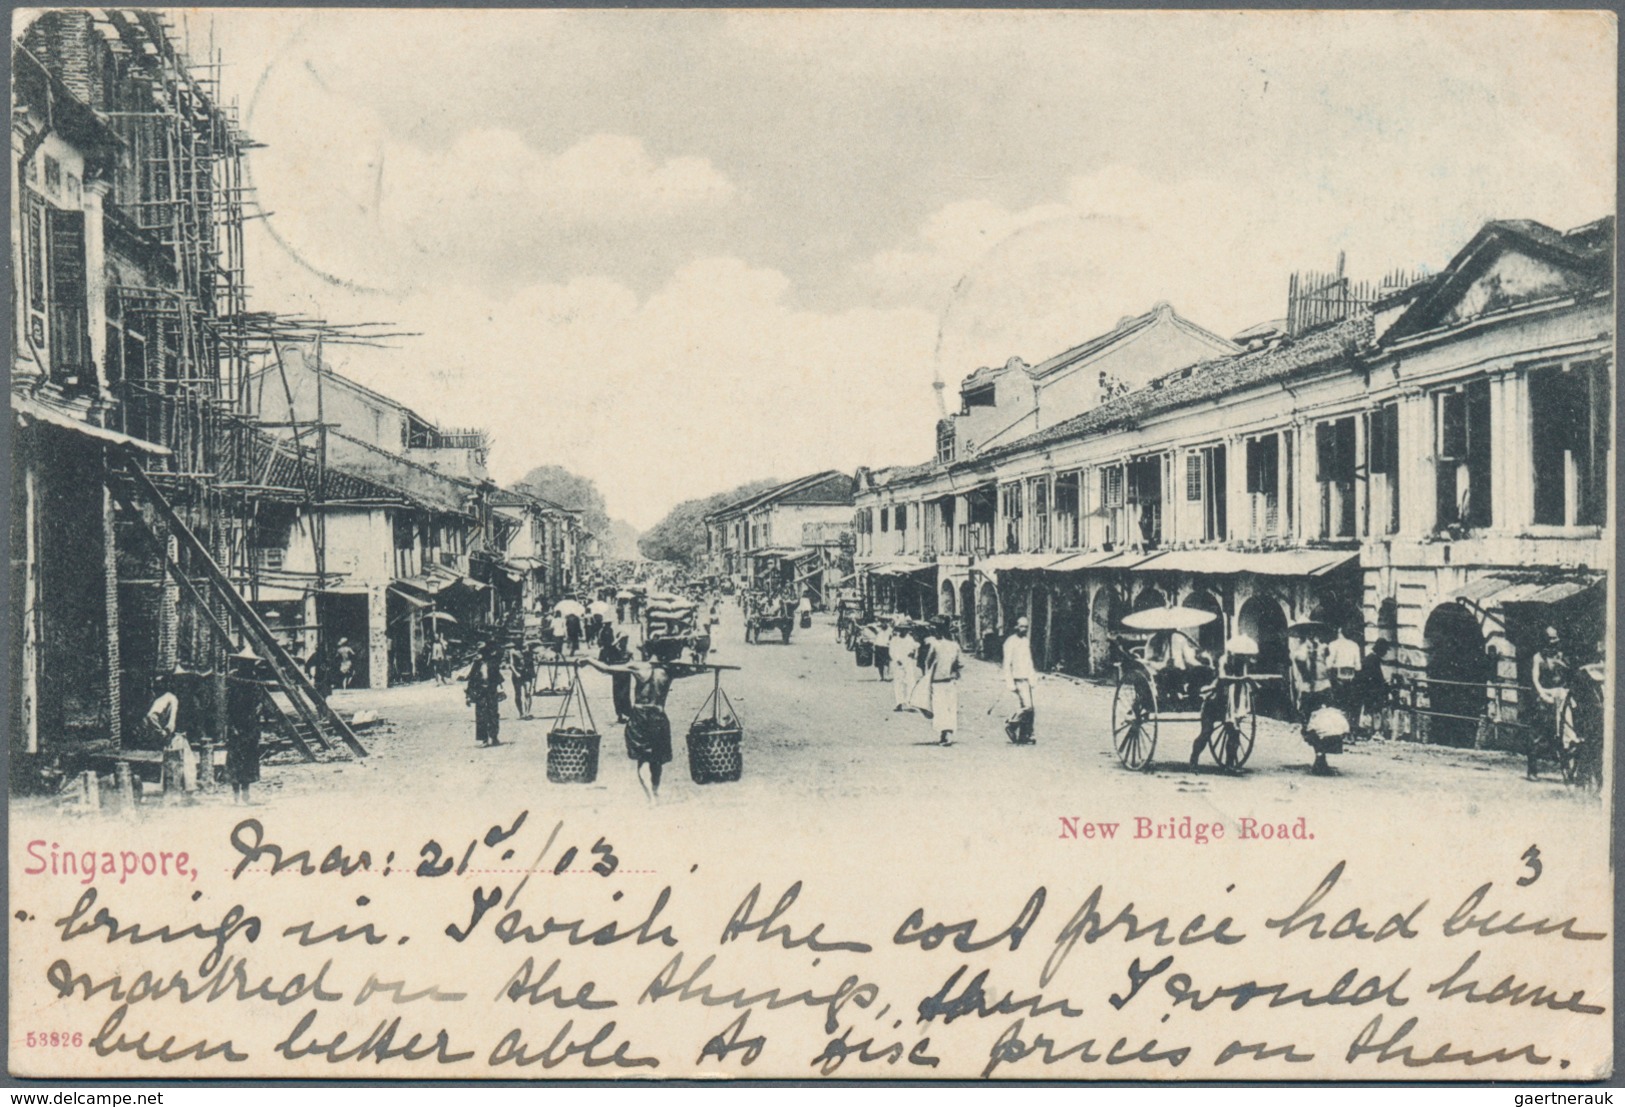 New Bridge Road.
Singapore, Mar: 21st/03
3
brings in. I wish the cost price had been
marked on the things, then I would have
53826
been better able to fix prices on them.
delcampe.net
gaertnerauk